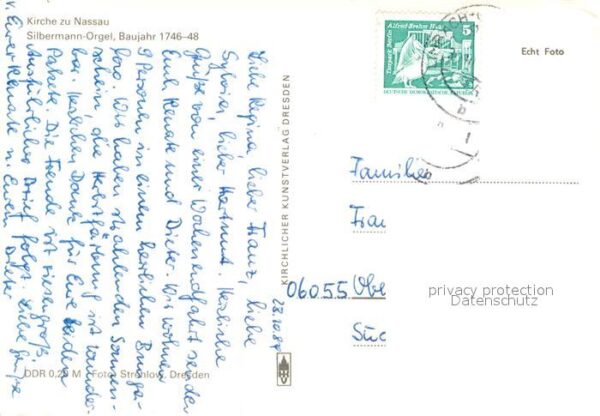 Kirche zu Nassau
Silbermann-Orgel, Baujahr 1746–48
Echt Foto
Tierpark Berlin Alfred-Brehm-Haus
5
DEUTSCHE DEMOKRATISCHE REPUBLIK
Liebe Regina, lieber Franz, liebe
Sylvia, lieber Hartmut. Herzliche
Grüße von einer Wochenendfahrt senden
Euch Renate und Dieter. Wir wohnen
9 Personen in einem herrlichen
Wir haben strahlenden Sonnen-
schein, die Herbstfärbung ist wunder-
bar. Herzlichen Dank für Eure beiden
Pakete. Die Freude ist riesengroß.
Ausführlicher Brief folgt. Liebe Grüße
v. Eurer Renate u. Euern Dieter
23.10.84
KIRCHLICHER KUNSTVERLAG DRESDEN
Familie
Frau
06055 Obe
privacy protection
Datenschutz
DDR 0,20 M Foto: Strehlow, Dresden